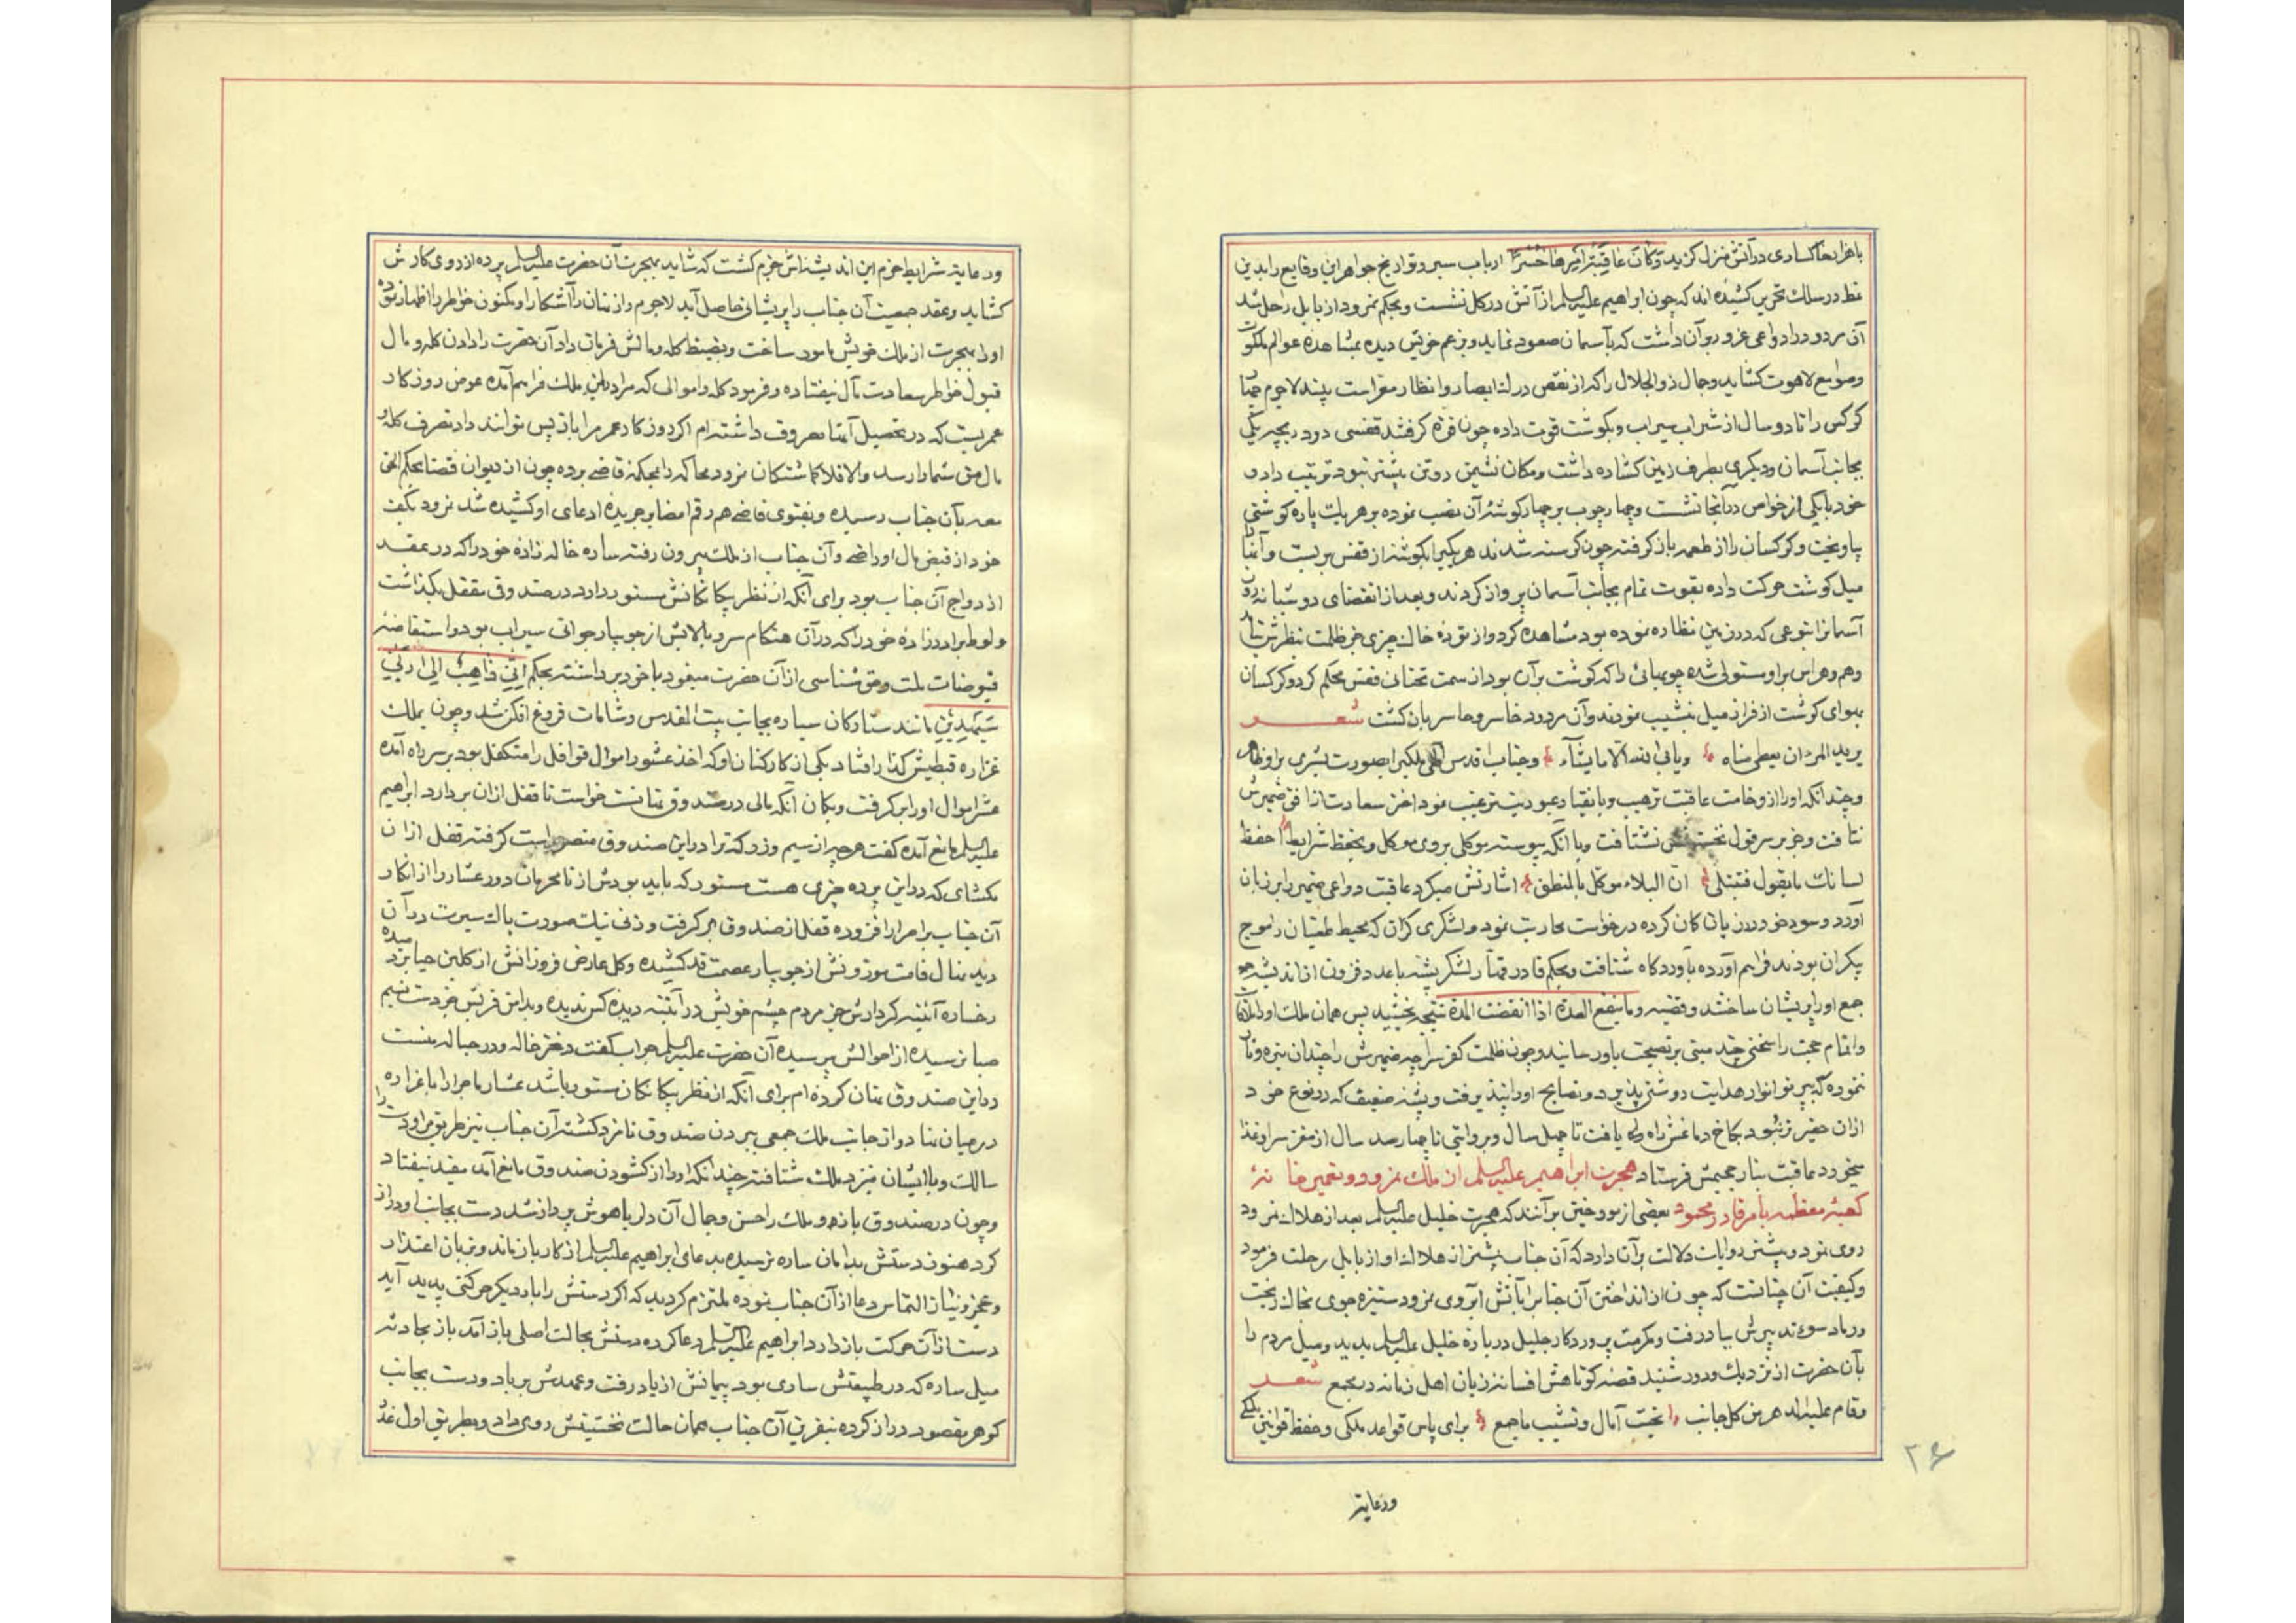 باهزار خاکساری در آتش منزل گزید وَکَانَ عَاقِبَةُ اَمْرِهَا خُسْرًا ارباب سیر و تواریخ جواهر این وقایع را بدین
نمط در سلک تحریر کشیده اند که چون ابراهیم علیه السلم از آتش در کل نشست و بحکم نمرود از بابل راحل شد
آن مردود را دواعی غرور بر آن داشت که بآسمان صعود نماید و بزعم خویش دیده بمشاهده عوالم ملکوت
وصوامع لاهوت کشاید وجمال ذوالجلال را که از نقص درک ابصار و انظار معراست بیند لاجرم چهار
کرکس را تا دو سال از شراب سیراب و بکوشت قوت داده چون قوه کرفتند قفسی دو دریچه یکی
بجانب آسمان و دیکری بطرف زمین کشاده داشت و مکان نشیمن دو تن بیشتر نبود ترتیب داد و
خود با یکی از خواص در آنجا نشست و چهار چوب بر چهار کوشه آن نصب نموده بر هر یک پاره کوشتی
بیاویخت و کرکسان را از طعمه باز کرفته چون کرسنه شدند هر یکیرا بکوشه از قفس بر بست و آنها
میل کوشت حرکت داده بقوت تمام بجانب آسمان پرواز کردند و بعد از انقضای دو شبانه روز
آسمانرا بنوعی که در زمین نظاره نموده بود مشاهده کرد و از توده خاک چیزی جز ظلمت بنظرش نیامد
وهم و هراس بر او مستولی شده چوبهائی را که کوشت بر آن بود از سمت تحتانی قفس محکم کرد و کرکسان
بهوای کوشت از فراز میل بنشیب نمودند و آن مردود خاسر و خاسر بان کشت شعر
یرید المرء ان یعطی مناه ویابی الله الا ما یشآء وجناب اقدس الهی ملکیرا بصورت بشری بر او ظاهر
وچندانکه او را از وخامت عاقبت ترهیب و بانقیاد عبودیت ترغیب نمود اختر سعادت از افق ضمیرش
نتافت وجز بر سر قول نخستین نشتافت وبا آنکه پیوسته موکلی بروی موکل و بحفظ شرایط احفظ
لسانک ما یقول فتبتلی ان البلاء موکل بالمنطق اشارتش میکرد عاقبت دواعی ضمیر را بر زبان
آورد و سود خود در زیان کان کرده درخواست محاربت نمود و لشکری کران که محیط طغیان را موج
بیکران بودند فراهم آورده بآوردکاه شتافت و بحکم قادر قهار لشکر پشه با عدد فزون از اندیشه
جمع او را پریشان ساختند و قضیه وما ینفع العدة اذا انقضت المدة نتیجه بخشید پس همان ملک او را ملاقات
واتمام حجت را سخنی چند مبتنی بر نصیحت باو رسانید و چون ظلمت کفر سراچه ضمیرش را چندان تیره و تار
نموده که بپرتو انوار هدایت روشنی پذیرد و نصایح او را نپذیرفت و پشه ضعیف که در نوع خود
ازان حقیر تر نبود بکاخ دماغش راه یافت تا چهل سال و بروایتی تا چهار صد سال از مغز سر او غذا
میخورد عاقبت بنار جحیمش فرستاد هجرت ابراهیم علیه السلم از ملک نمرود و تعمیر خانه
کعبه معظمه بامر قادر محمود بعضی از مورخین بر آنند که هجرت خلیل علیه السلم بعد از هلاک نمرود
روی نمود و بیشتر روایات دلالت بر آن دارد که آن جناب پیشتر از هلاک او از بابل رحلت فرمود
وکیفیت آن چنانست که چون از انداختن آن جناب بآتش آبروی نمرود ستیزه جوی بخاک ریخت
ورماد سوء تدبیرش بباد رفت و مکرمت پروردکار جلیل درباره خلیل علیه السلم بدید و میل مردم را
بآن حضرت از نزدیک و دور شنید قصه کوتاهش افسانه زبان اهل زمانه در مجمع شعر
وقام علیه الدهر من کل جانب بخت آمال و تشیب ما جمع برای پاس قواعد ملکی و حفظ قوانین
ورعایة
۲۶
ورعایة شرایط حزم این اندیشه اش جزم کشت که شاید بهجرت آن حضرت علیه السلم پرده از روی کارش
کشاید و عقد جمعیت آن جناب را پریشانی حاصل آید لاجرم راز نهان را آشکارا و مکنون خواطر را اظهار نموده
او را بهجرت از ملک خویش مامور ساخت و بضبط کله و مالش فرمان داد آن حضرت را دادن کله و مال
قبول خواطر سعادت مآل نیفتاده و فرمود کله و اموالی که مرا در این ملک فراهم آمده عوض روزکار
عمریست که در تحصیل آنها مصروف داشته ام اکر روزکار عمر مرا باز پس توانند داد تصرف کله و
مال حق شما را رسد والا فلا کماشتکان نمرود محاکه را بمحکمه قاضی برده چون از دیوان قضا بحکم الحق
معه بآن جناب رسیده و بفتوی قاضی هم رقم امضا بر جریده ادعای او کشیده شد نمرود بکفت
خود از قبض مال او راضی و آن جناب از ملک بیرون رفته ساره خاله زاده خود را که در عقد
ازدواج آن جناب بود برای آنکه از نظر بیکانکانش مستور دارد در صندوقی مقفل بکذاشت
ولوط برادر زاده خود را که در آن هنکام سرو بالایش از جویبار جوانی سیراب بود و استفاضه
فیوضات ملت و حق شناسی از آن حضرت مینمود با خود برداشته بحکم اِنّی ذَاهِبٌ اِلی رَبّی
سَیَهْدِینِ مانند ستارکان سیاره بجانب بیت المقدس و شامات فروغ افکن شد و چون بملک
عزاره قبطیش کذار افتاد یکی از کارکنان او که اخذ عشور اموال قوافل را متکفل بود بر سر راه آمده
عشر اموال او را بر کرفت و بکمان آنکه مالی در صندوق نهانست خواست تا قفل ازان بردارد ابراهیم
علیه السلم مانع آمده کفت هرچه از سیم و زر که ترا در این صندوق متصور است کرفته قفل ازان
مکشای که در این پرده چیزی هست مستور که باید بودش از نامحرمان دور عشار را از انکار
آن جناب بر اصرار افزوده قفل از صندوق بر کرفت و زنی نیک صورت پاک سیرت در آن
دید نهال قامت موزونش از جویبار عصمت قد کشیده و کل عارض فروزانش از کلبن حیا بردمیده
رخساره آئینه کردارش جز مردم چشم خویش در آئینه دیده کس ندیده و بدامن قربش جز دست نسیم
صبا نرسیده از احوالش پرسیده آن حضرت علیه السلم جواب کفت دختر خاله و در حباله منست
در این صندوق نهان کرده ام برای آنکه از نظر بیکانکان مستور باشد عشار ماجرا را با عزاره
در میان نهاد و از جانب ملک جمعی ببردن صندوق نامزد کشته آن جناب نیز طریق مرافقت را
سالک و با ایشان نیز نزد ملک شتافته چندانکه او را از کشودن صندوق مانع آمد مفید نیفتاد
وچون در صندوق باز و ملک را حسن و جمال آن دلربا هوش پرداز شد دست بجانب او دراز
کرد هنوز دستش بدامان ساره نرسیده بدعای ابراهیم علیه السلم از کار باز ماند و بزبان اعتذار
وعجز و نیاز التماس دعا از آن جناب نموده ملتزم کردید که اکر دستش را بار دیکر حرکتی پدید آید
دست از آن حرکت باز دارد ابراهیم علیه السلم دعا کرده دستش بحالت اصلی باز آمد باز بجاذبه
میل ساره که در طبیعتش ساری بود پیمانش از یاد رفت و عهدش بر باد و دست بجانب
کوهر مقصود دراز کرده بنفرین آن جناب همان حالت نخستینش روی داد و بطریق اول عذر